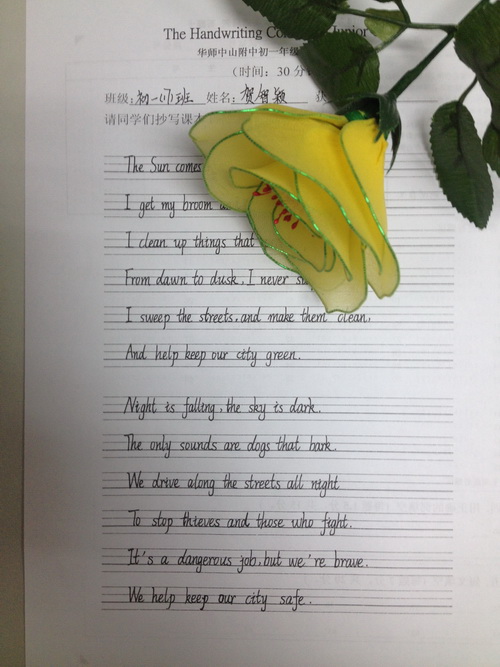 The Handwriting Co Junior
华师中山附中初一年级
(时间：30 分
班级：初一（8）班 姓名：贺智颖
请同学们抄写课本
The Sun comes
I get my broom a
I clean up things that
From dawn to dusk, I never s
I sweep the streets, and make them clean,
And help keep our city green.
Night is falling, the sky is dark.
The only sounds are dogs that bark.
We drive along the streets all night
To stop thieves and those who fight.
It's a dangerous job, but we're brave.
We help keep our city safe.